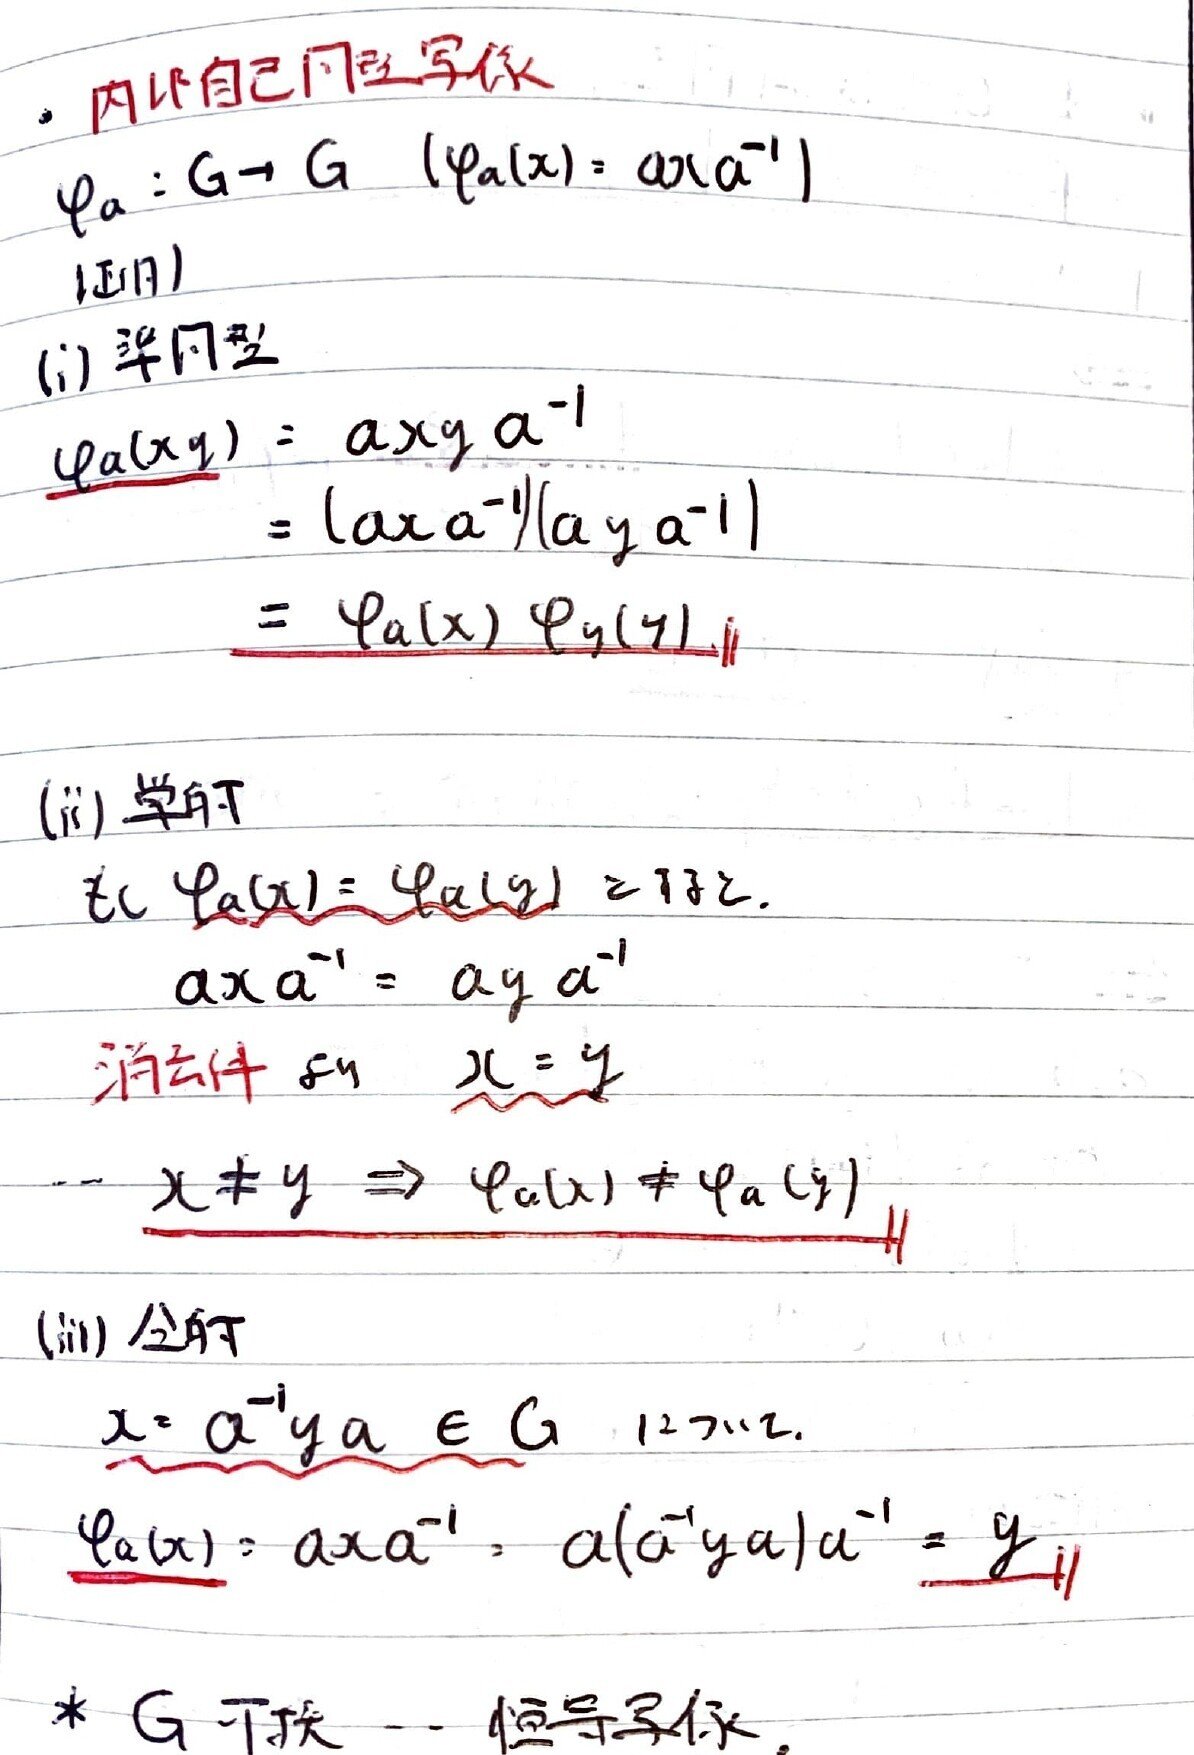 ・内部自己同型写像
φa : G → G (φa(x) = axa⁻¹)
(証明)
(i) 準同型
φa(xy) = axya⁻¹
= (axa⁻¹)(aya⁻¹)
= φa(x) φy(y)
(ii) 単射
もし φa(x) = φa(y) とすると.
axa⁻¹ = aya⁻¹
消去律 より x = y
… x ≠ y ⇒ φa(x) ≠ φa(y)
(iii) 全射
x = a⁻¹ya ∈ G について.
φa(x) = axa⁻¹ = a(a⁻¹ya)a⁻¹ = y
* G 可換 … 恒等写像.